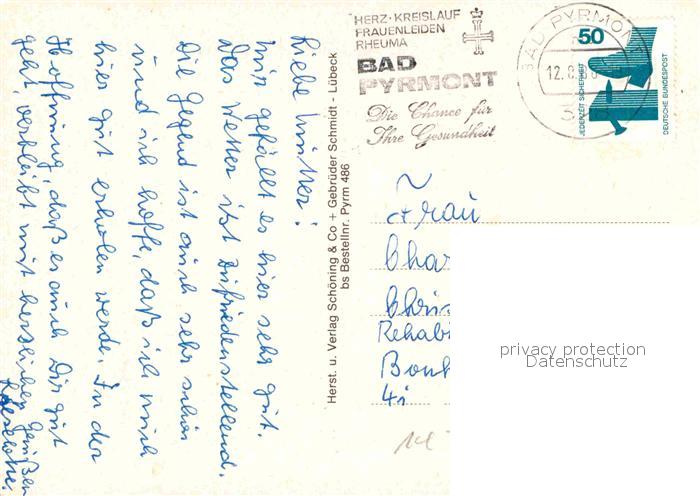 Liebe Mutter!
Mir gefällt es hier sehr gut.
Das Wetter ist zufriedenstellend.
Die Gegend ist auch sehr schön
und ich hoffe, daß ich mich
hier gut erholen werde. In der
Hoffnung, daß es auch Dir gut
geht, verbleibt mit herzlichen Grüßen
Lieselotte.
Herst. u. Verlag Schöning & Co + Gebrüder Schmidt - Lübeck
bs Bestellnr. Pyrm 486
HERZ·KREISLAUF
FRAUENLEIDEN
RHEUMA
BAD
PYRMONT
Die Chance für
Ihre Gesundheit
BAD PYRMONT
12.8.
50
JEDERZEIT SICHERHEIT
DEUTSCHE BUNDESPOST
Frau
Char
Chris
Rehabi
41
privacy protection
Datenschutz